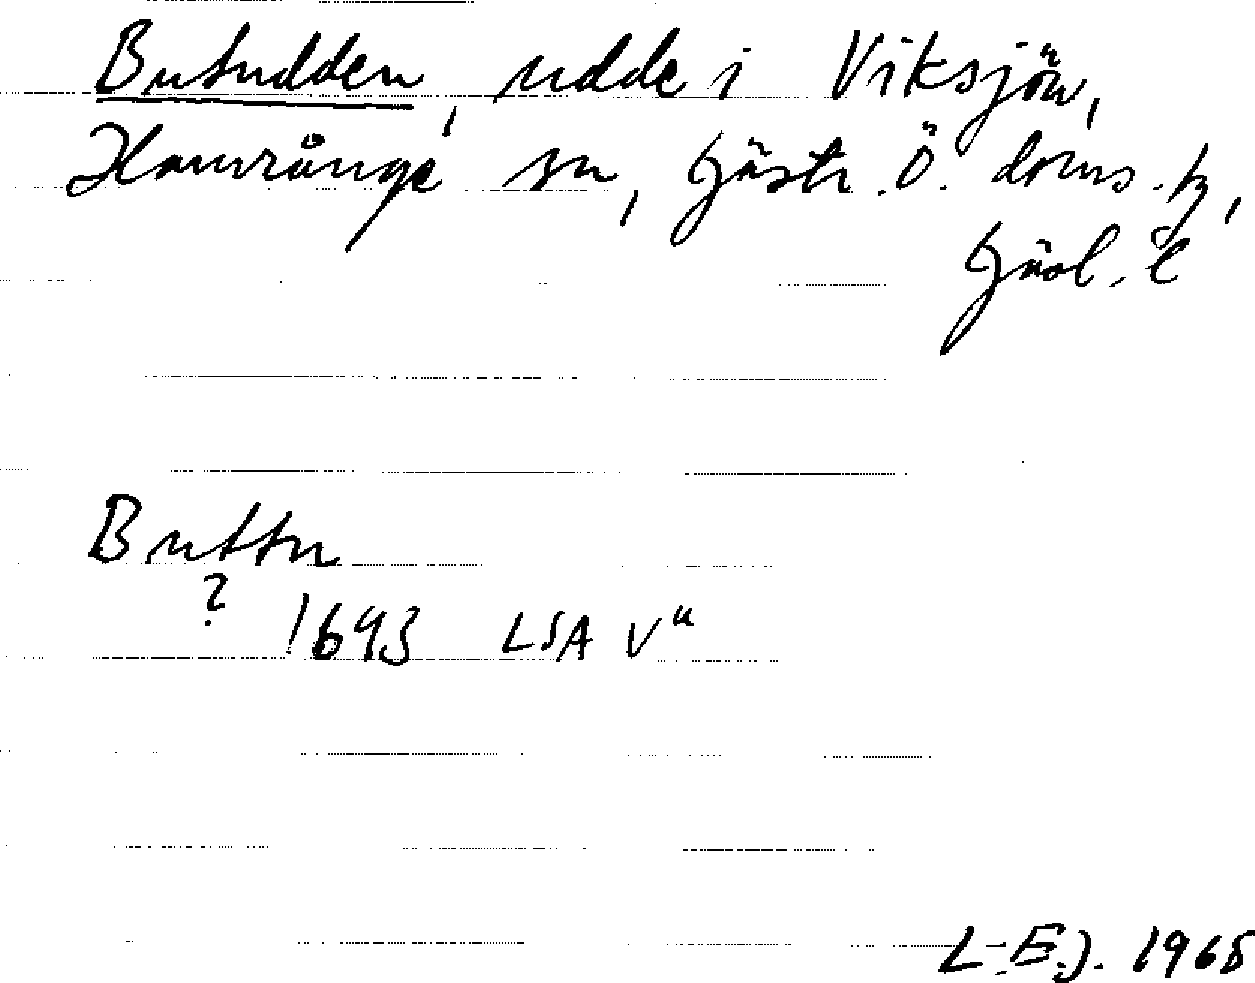 Butudden, udde i Viksjön,
Hamrånge sn, Gästr. Ö. doms. h,
Gävl. l
Buttu
?
1693 LSA V"
L-E.J. 1968